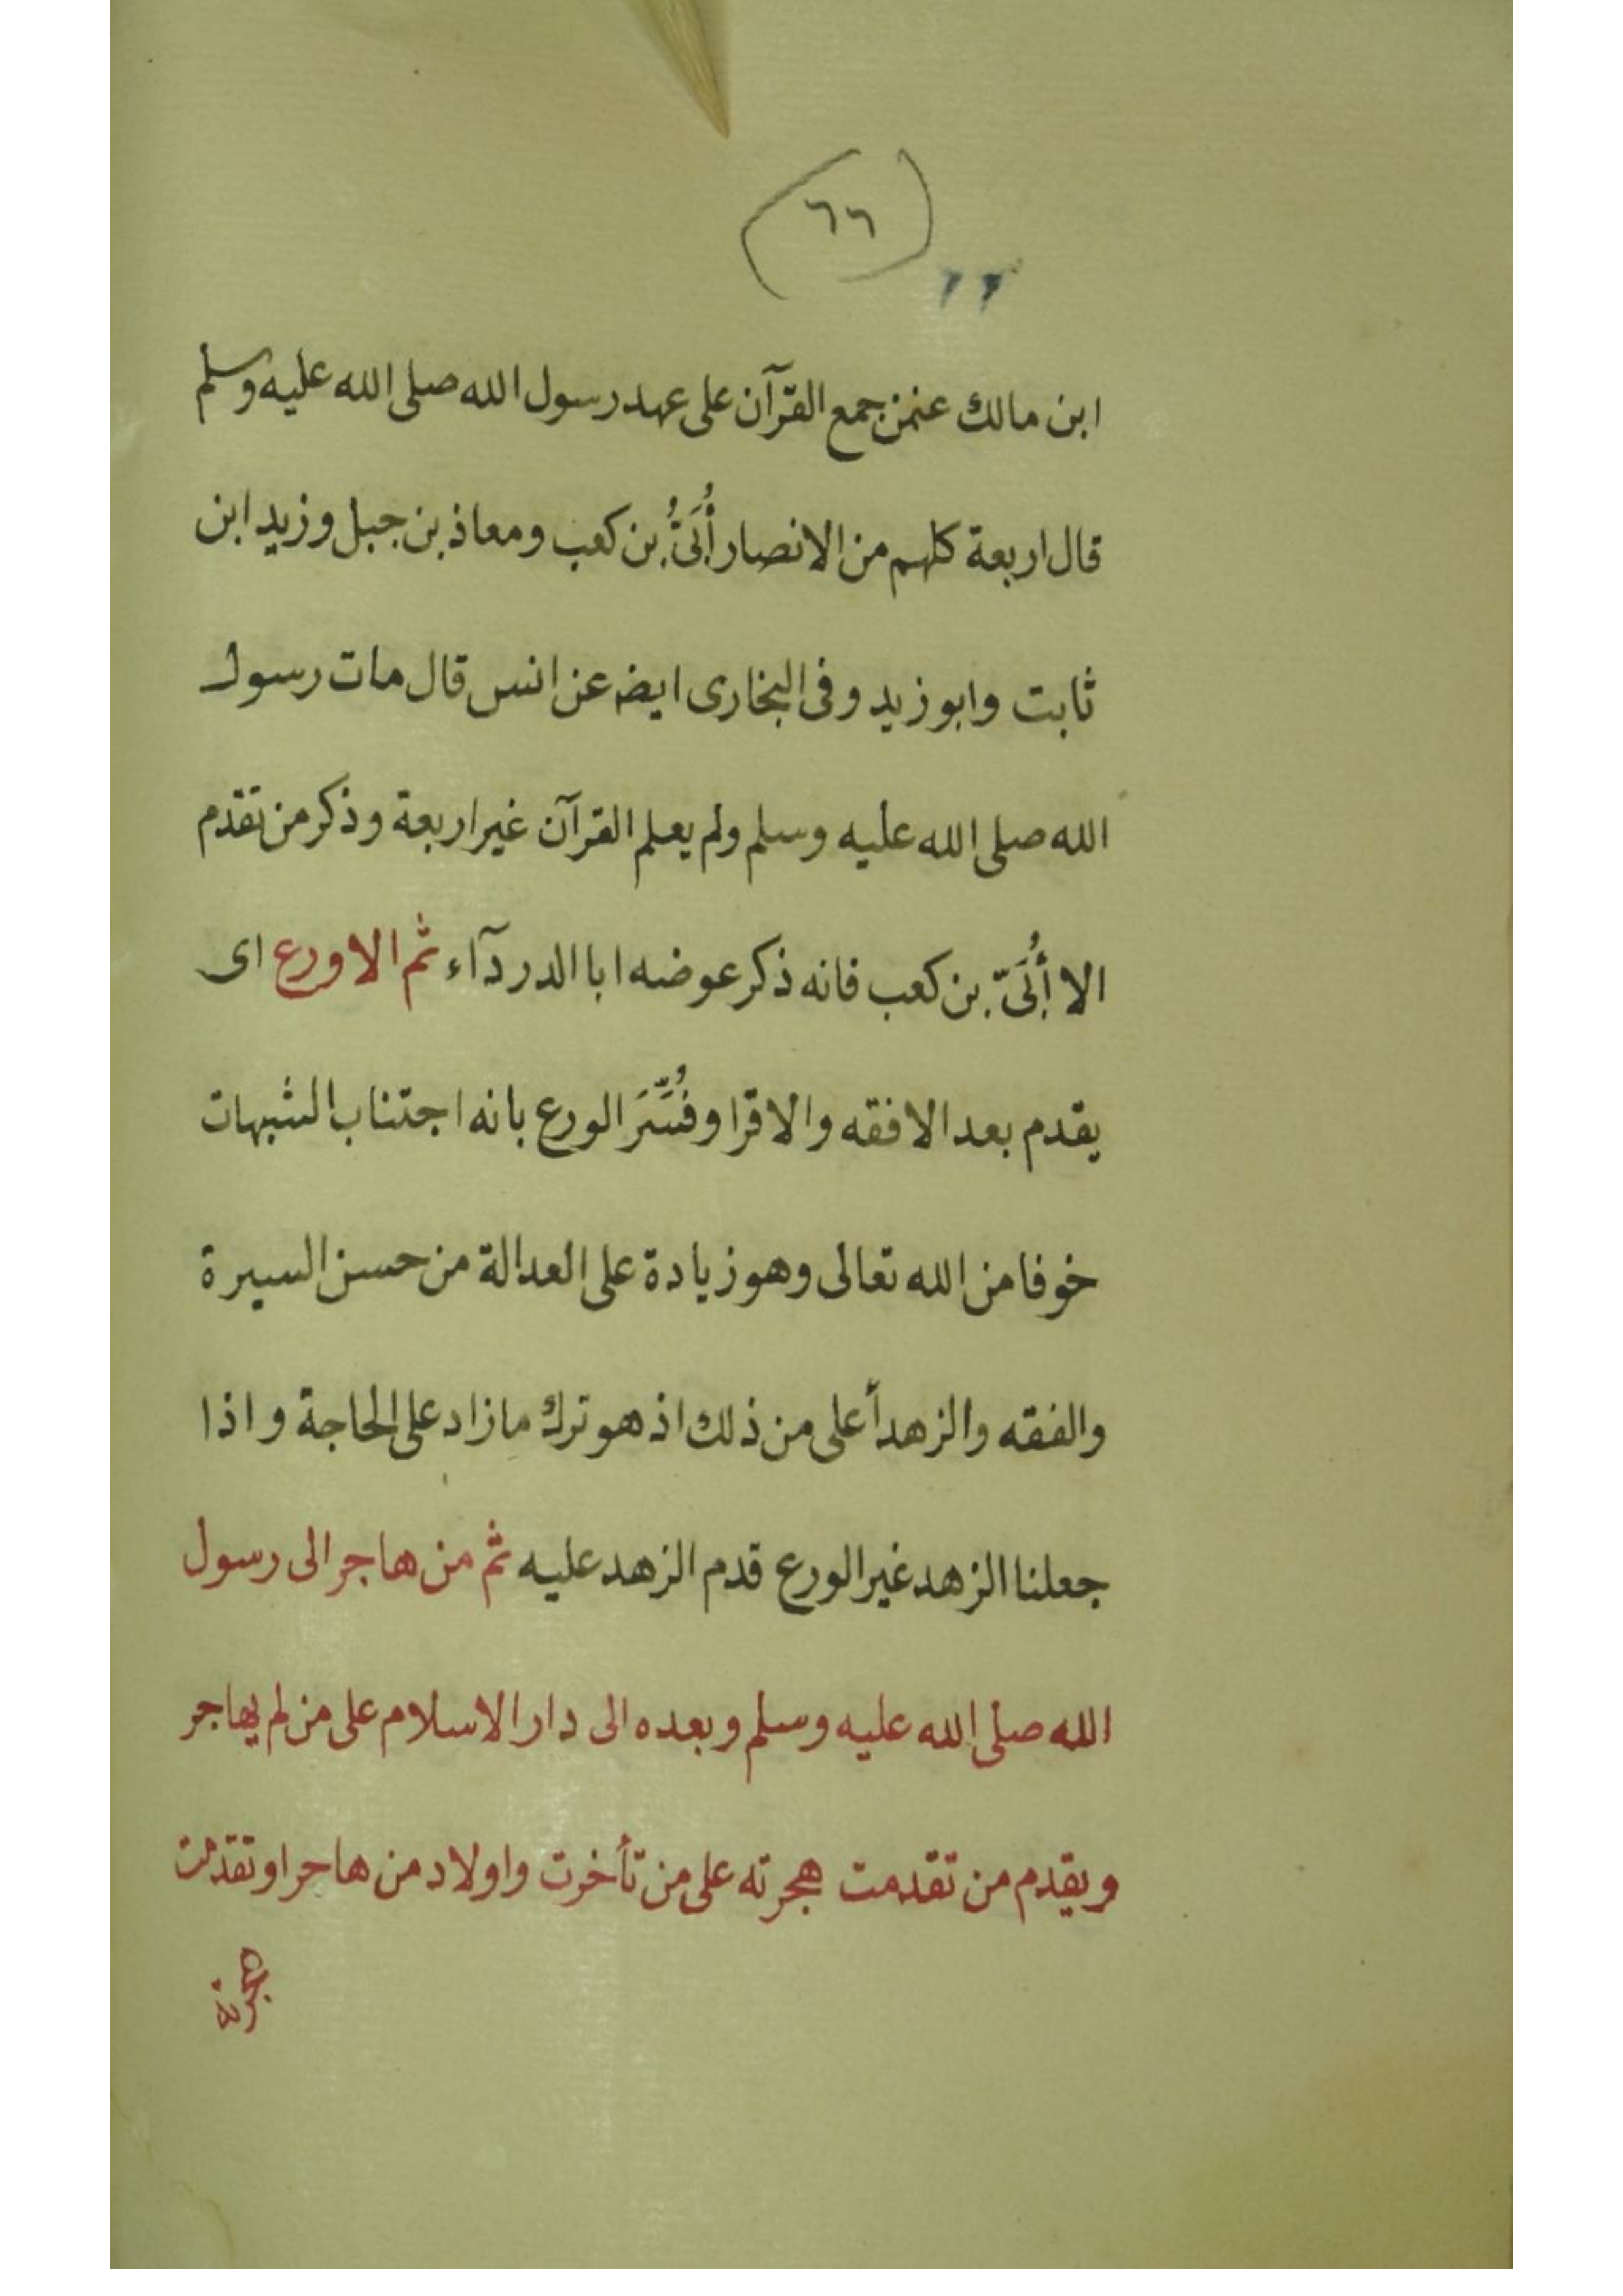 (٦٦)
٦٦
ابن مالك عنمن جمع القرآن على عهد رسول الله صلى الله عليه وسلم
قال اربعة كلهم من الانصار أُبَىُّ بن كعب ومعاذ بن جبل وزيد ابن
ثابت وابو زيد وفى البخارى ايضه عن انس قال مات رسول
الله صلى الله عليه وسلم ولم يعلم القرآن غير اربعة وذكر من تقدم
الا أُبَىّ بن كعب فانه ذكر عوضه ابا الدردآء ثم الاورع اى
يقدم بعد الافقه والاقرا وفُسِّرَ الورع بانه اجتناب الشبهات
خوفا من الله تعالى وهو زيادة على العدالة من حسن السيرة
والفقه والزهد أعلى من ذلك اذ هو ترك ما زاد على الحاجة واذا
جعلنا الزهد غير الورع قدم الزهد عليه ثم من هاجر الى رسول
الله صلى الله عليه وسلم وبعده الى دار الاسلام على من لم يهاجر
ويقدم من تقدمت هجرته على من تأخرت واولاد من هاحر او تقدمت
هجرته